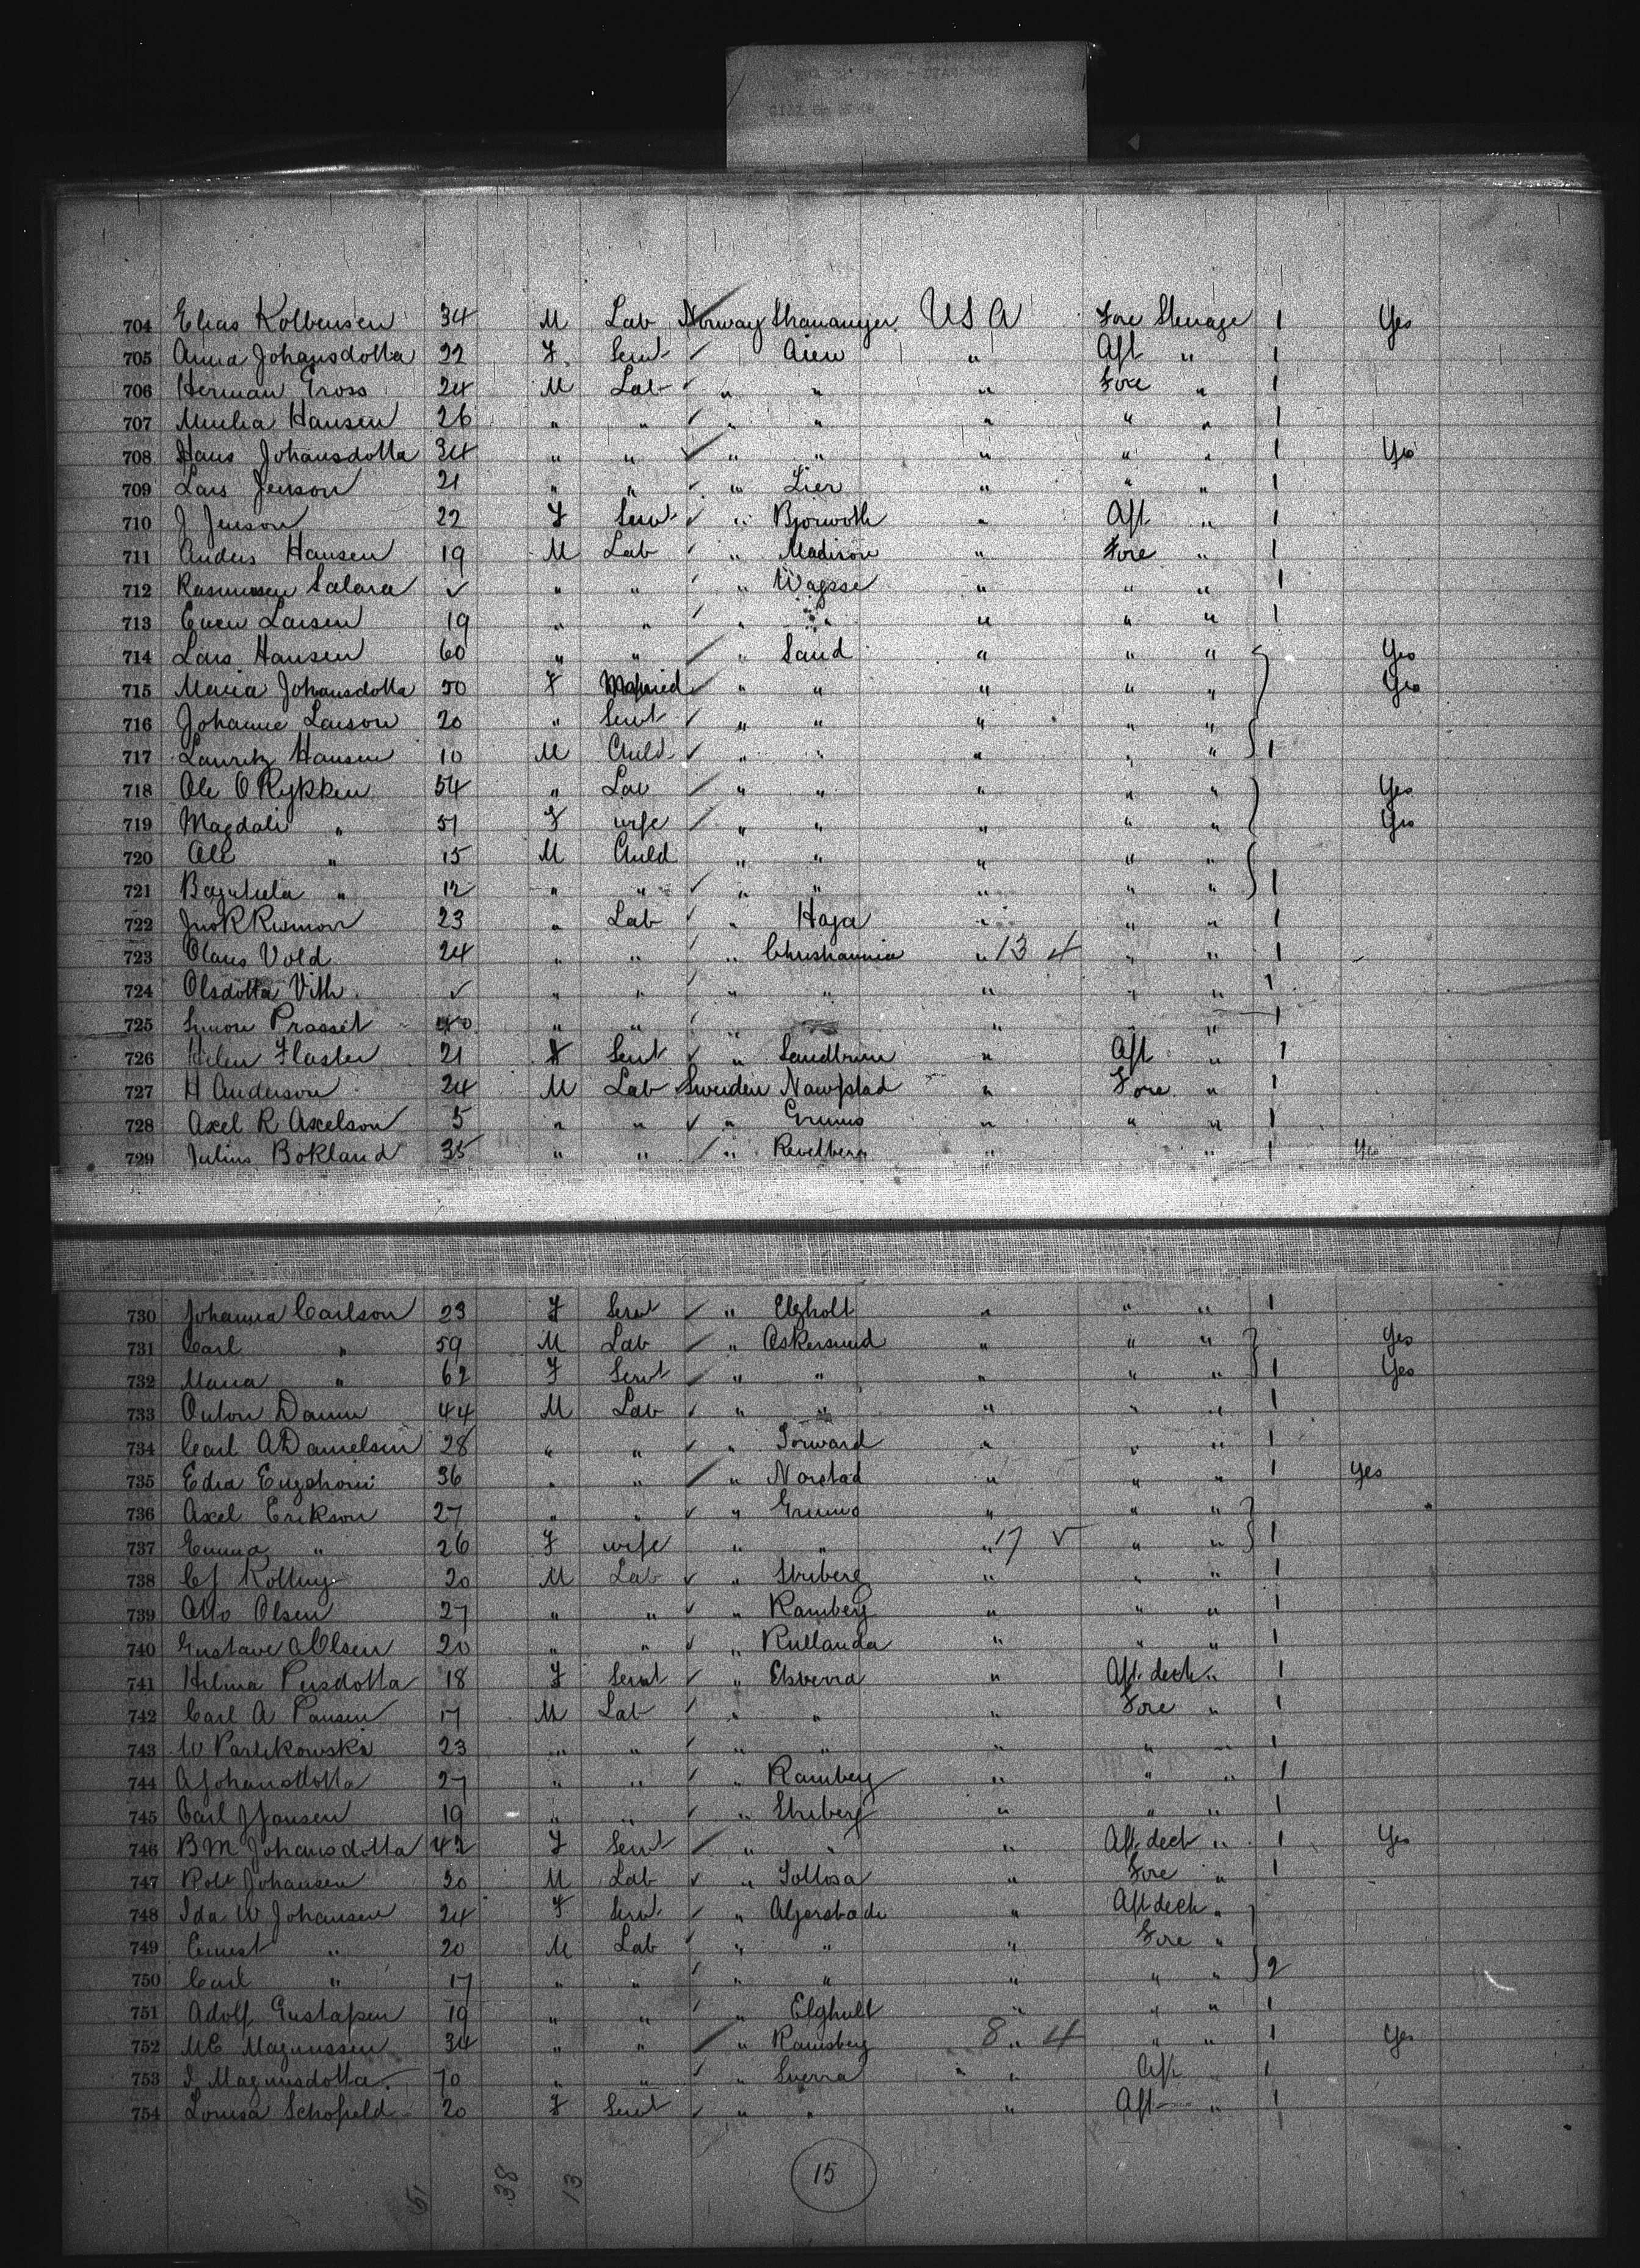 704 Elias Kolbensen 34 M Lab Norway Shananger USA Fore Sterage 1 Yes
705 Anna Johansdotta 22 F Sert ✓ Aien " Aft " 1
706 Herman Gross 24 M Lab ✓ " " " Fore " 1
707 Hansen 26 " " ✓ " " " " " 1
708 Hans Johansdotta 34 " " ✓ " " " " " 1 Yes
709 Lars Jenson 21 " " ✓ " Lier " " " 1
710 J Jenson 22 F Servt ✓ " Bjorwoth " Aft " 1
711 Anders Hansen 19 M Lab ✓ " Madison " Fore " 1
712 Rasmusen Salara ✓ " " ✓ " Wagsse " " " 1
713 Even Larsen 19 " " ✓ " " " " " 1
714 Lars Hansen 60 " " ✓ " Sand " " " Yes
715 Maria Johansdotta 50 F Married ✓ " " " " " Yes
716 Johanne Larson 20 " Servt ✓ " " " " "
717 Lauritz Hansen 10 M Child ✓ " " " " " 1
718 Ole O Rykken 54 " Lab ✓ " " " " " Yes
719 Magdali " 51 F wife ✓ " " " " " Yes
720 Ole " 15 M Child " " " " "
721 " 12 " " ✓ " " " " " 1
722 23 " Lab ✓ " Haga " " " 1
723 Olaus Vold 24 " " ✓ " Christiannia " 13 4 " " 1
724 Olsdotta Vith ✓ " " ✓ " " " " " 1
725 Simon Prassit 40 " " ✓ " " " " 1
726 Helen Flaster 21 F Sert ✓ " Sandbrun " Aft " 1
727 H Anderson 24 M Lab Sweden Nawstad " Fore " 1
728 Axel R Axelson 5 " " ✓ " Grums " " " 1
729 Julius Bokland 35 " " ✓ " Revelberg " " 1 Yes
730 Johanna Carlson 23 F Servt ✓ " Elgholt " " " 1
731 Carl " 59 M Lab ✓ " Askersund " " " Yes
732 Maria " 62 F Servt ✓ " " " " " 1 Yes
733 Anton Damm 44 M Lab ✓ " " " " " 1
734 Carl A Danielsen 28 " " ✓ " Torward " " " 1
735 Edia Engshom 36 " " ✓ " Norstad " " " 1 Yes
736 Axel Erikson 27 " " ✓ " Grums " " "
737 Emma " 26 F wife " " " 17 ✓ " " 1
738 CJ Kolling 20 M Lab ✓ " Striberg " " " 1
739 Otto Olsen 27 " " ✓ " Ramberg " " " 1
740 Gustave A Olsen 20 " " ✓ " Rullanda " " " 1
741 Hilma Persdotta 18 F Servt ✓ " " Aft deck " 1
742 Carl A Pansen 17 M Lab ✓ " " " Fore " 1
743 W Parlikowski 23 " " ✓ " " " " " 1
744 A Johansdotta 27 " " ✓ " Ramberg " " " 1
745 Carl J Jansen 19 " " ✓ " Striberg " " " 1
746 BM Johansdotta 42 F Servt ✓ " " " Aft deck " 1 Yes
747 Robt Johansen 20 M Lab ✓ " Tollosa " Fore " 1
748 Ida W Johansen 24 F Servt ✓ " Algerstade " Aft deck "
749 Ernest " 20 M Lab ✓ " " " Fore "
750 Carl " 17 " " ✓ " " " " " 2
751 Adolf Gustafsen 19 " " ✓ " Elghult " " " 1
752 MC Magnussen 34 " " ✓ " Ramsberg 8 " 4 " " 1 Yes
753 I Magnusdotta 70 " " ✓ " Sverra " " Aft " 1
754 Lovisa Schofield 20 F Servt ✓ " " " Aft " 1
51 38 13 15